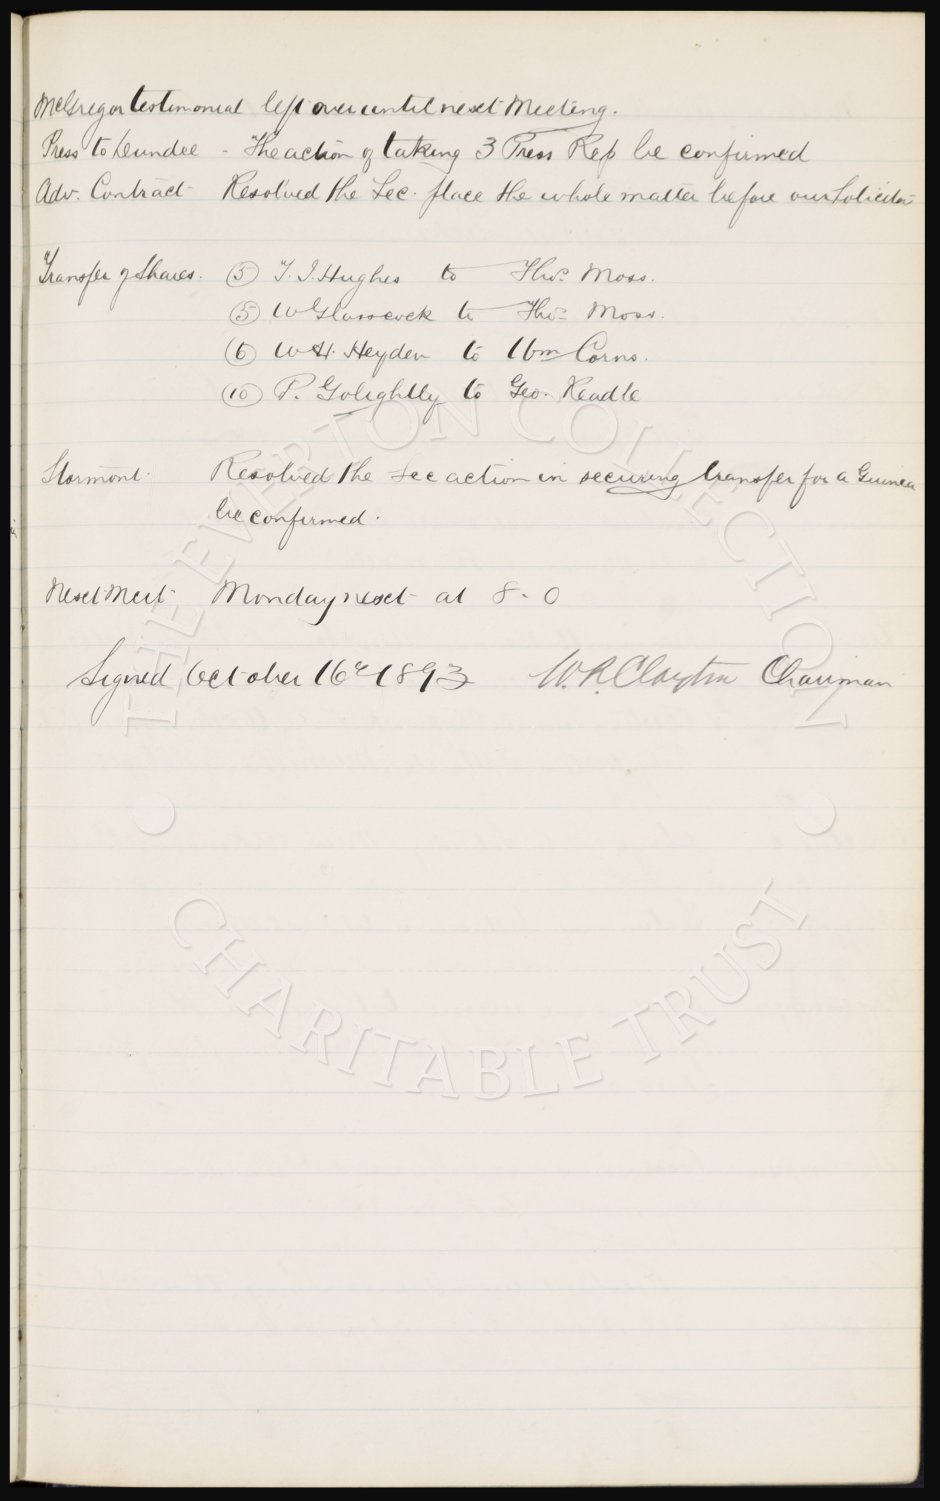 McGregor testimonial left over until next Meeting.
Press to Dundee - The action of taking 3 Press Rep be confirmed
Adv. Contract Resolved the Sec. place the whole matter before our Solicitor
Transfer of Shares. (5) T. J. Hughes to Thos. Moss.
(5) W Glasscock to Thos. Moss.
(6) W. H. Heyden to Wm Corns.
(10) P. Golightly to Geo. Keadle
Stormont. Resolved the Sec action in securing transfer for a Guinea
be confirmed.
Next Meet. Monday next at 8-0
Signed October 16th 1893 W. R. Clayton Chairman
THE EVERTON COLLECTION
CHARITABLE TRUST